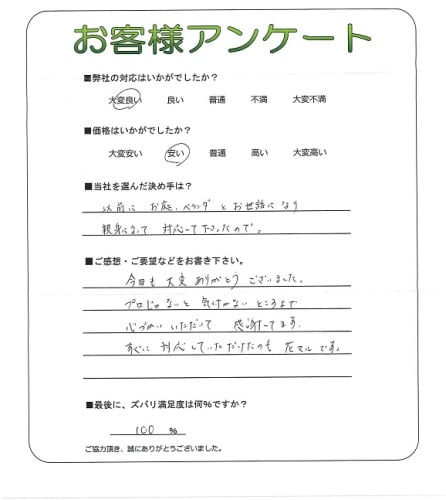 お客様アンケート
■弊社の対応はいかがでしたか?
大変良い 良い 普通 不満 大変不満
■価格はいかがでしたか?
大変安い 安い 普通 高い 大変高い
■当社を選んだ決め手は?
以前に お庭、ベランダ と お世話になり
親身になって 対応して下さったので。
■ご感想・ご要望などをお書き下さい。
今回も 大変 ありがとう ございました。
プロじゃないと 気付かない ところまで
心づかい いただいて 感謝してます。
すぐに 対応していただけたのも 花マル です。
■最後に、ズバリ満足度は何%ですか?
100 %
ご協力頂き、誠にありがとうございました。